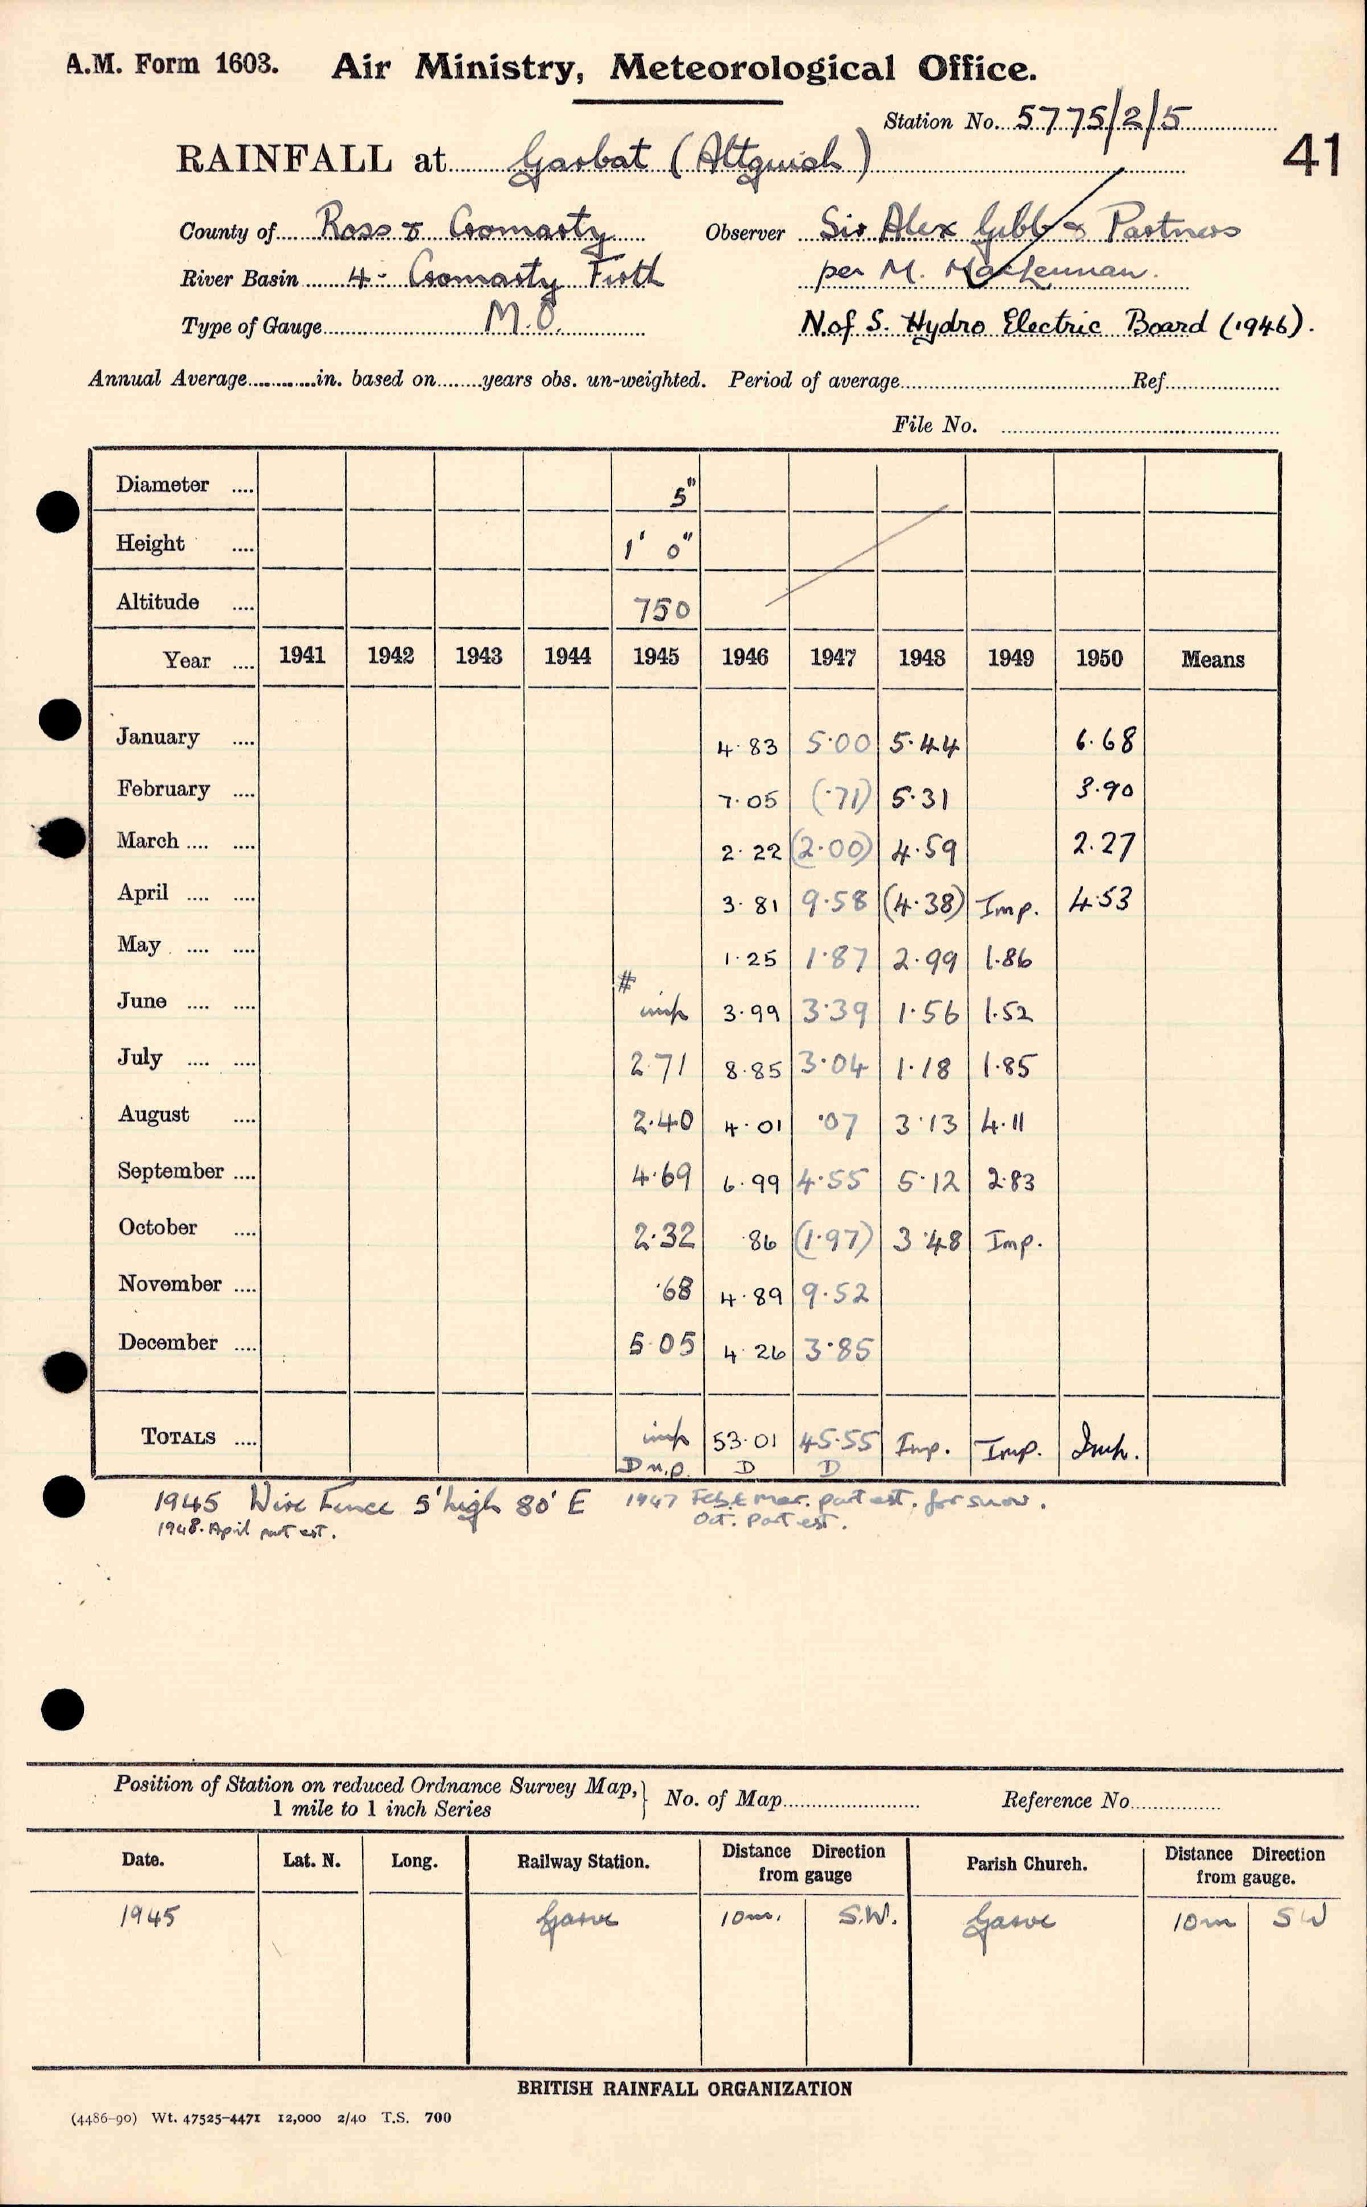 A.M. Form 1603. Air Ministry, Meteorological Office.
Station No. 5775/2/5
41
RAINFALL at Garbat (Altguish)
County of Ross & Cromarty Observer Sir Alex Gibb & Partners
River Basin 4 - Cromarty Firth per M. MacLennan.
Type of Gauge M.O. N. of S. Hydro Electric Board (1946).
Annual Average............in. based on........years obs. un-weighted. Period of average........Ref........
File No. ........
Diameter .... 5"
Height .... 1' 0"
Altitude .... 750
Year .... 1941 1942 1943 1944 1945 1946 1947 1948 1949 1950 Means
January .... 4.83 5.00 5.44 6.68
February .... 7.05 (.71) 5.31 3.90
March .... .... 2.22 (2.00) 4.59 2.27
April .... .... 3.81 9.58 (4.38) Imp. 4.53
May .... .... 1.25 1.87 2.99 1.86
June .... .... # imp 3.99 3.39 1.56 1.52
July .... .... 2.71 8.85 3.04 1.18 1.85
August .... 2.40 4.01 .07 3.13 4.11
September .... 4.69 6.99 4.55 5.12 2.83
October .... 2.32 .86 (1.97) 3.48 Imp.
November .... .68 4.89 9.52
December .... 5.05 4.26 3.85
TOTALS .... imp 53.01 45.55 Imp. Imp. Imp.
D n.p. D D
1945 Wire Fence 5' high 80' E 1947 Feb. & Mar. part est. for snow.
1948. April part est. Oct. Part est.
Position of Station on reduced Ordnance Survey Map,} No. of Map........ Reference No........
1 mile to 1 inch Series
Date. Lat. N. Long. Railway Station. Distance Direction from gauge Parish Church. Distance Direction from gauge.
1945 Garve 10m. S.W. Garve 10m S W
BRITISH RAINFALL ORGANIZATION
(4486-90) Wt. 47525-4471 12,000 2/40 T.S. 700